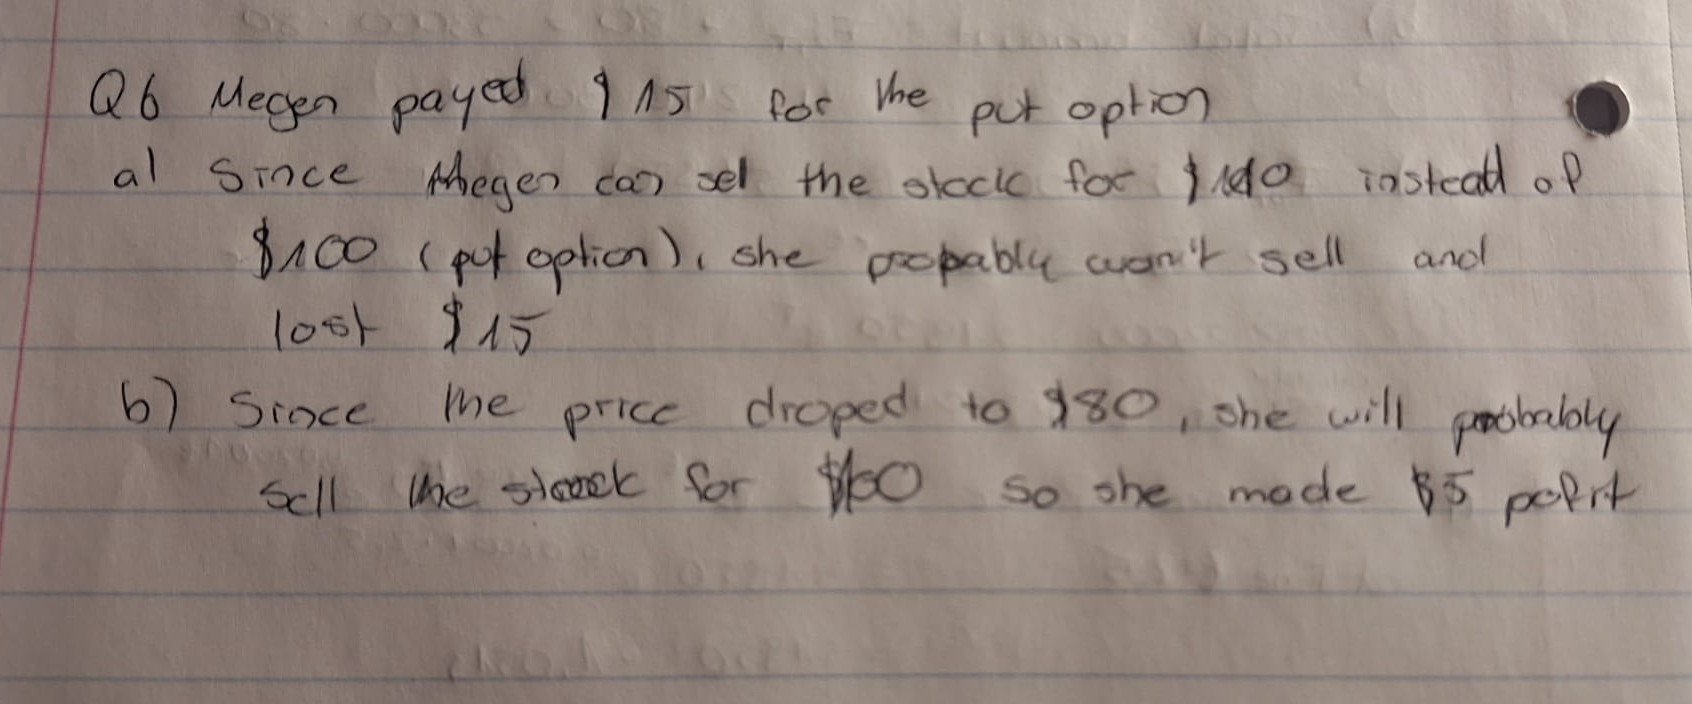 Q6 Megen payed $15 for the put option
a) Since Megen can sel the stock for $140 instead of
$100 (put option), she propably won't sell and
lost $15
b) Since the price droped to $80, she will probably
sell the stock for $100 so she made $5 pofit